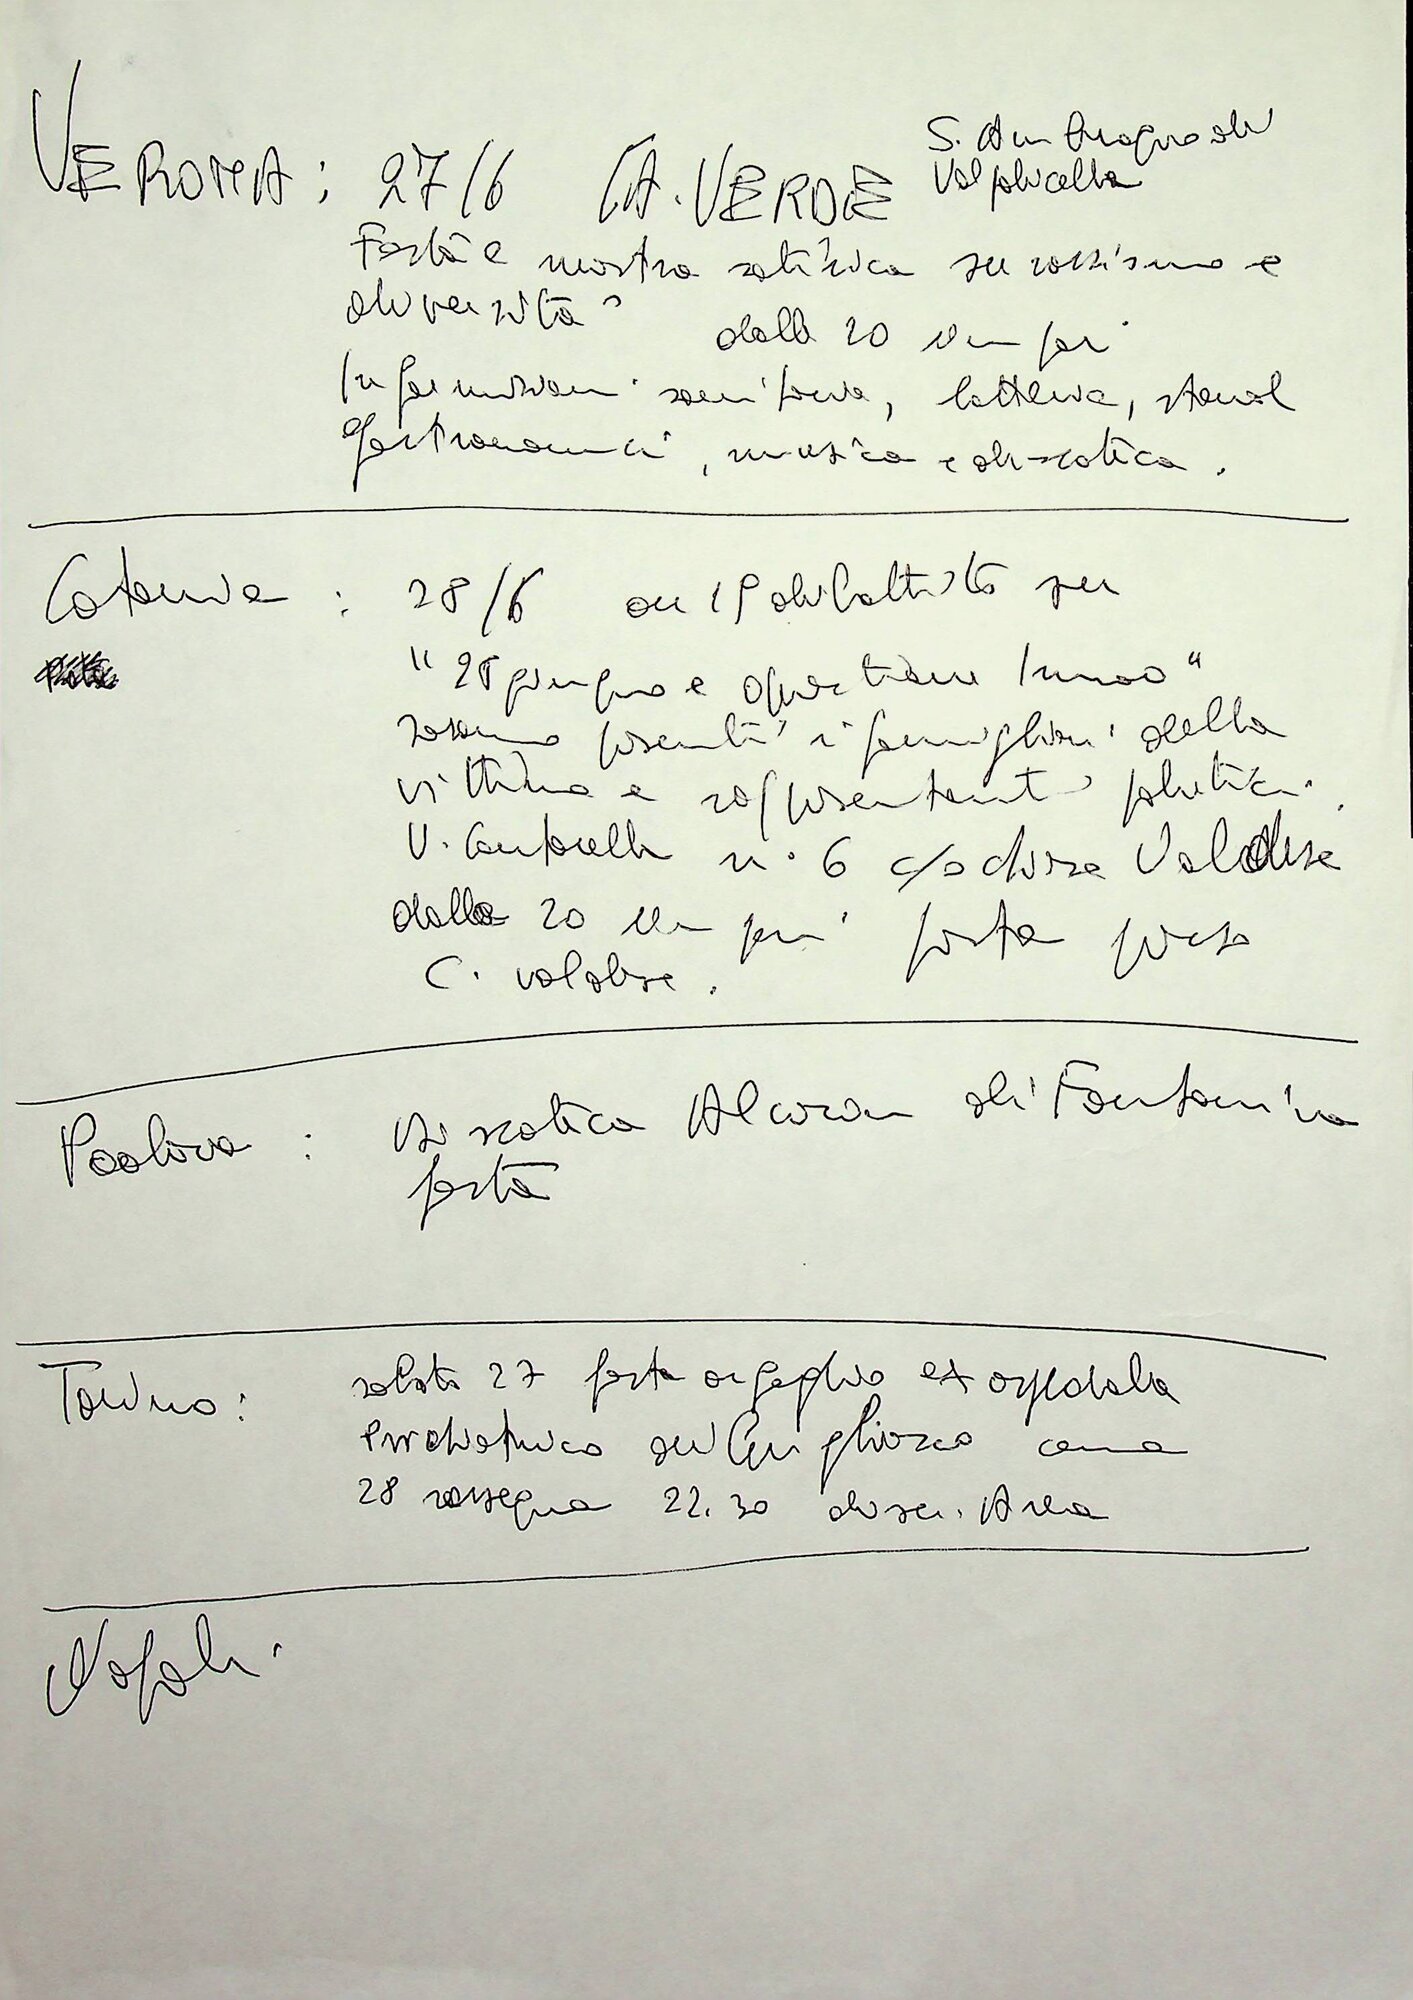 VERONA: 27/6 CA. VERDE S. Ambrogio di
Valpolicella
Festa e mostra satirica su razzismo e
diversità" dalle 20 in poi
Informazioni sanitarie, lotteria, stand
gastronomici, musica e discoteca.
Catania: 28/6 dibattito su
"28 giugno e questione"
saranno presenti i famigliari della
vittima e rappresentanti politici.
V. Cantarella n. 6 c/o chiesa Valdese
dalle 20 in poi festa presso
C. valdese.
Padova: discoteca Alcazar di Fontaniva
festa
Torino: sabato 27 festa orgoglio ex ospedale
psichiatrico di Grugliasco cena
28 rassegna 22.30 disco. Area
Napoli.